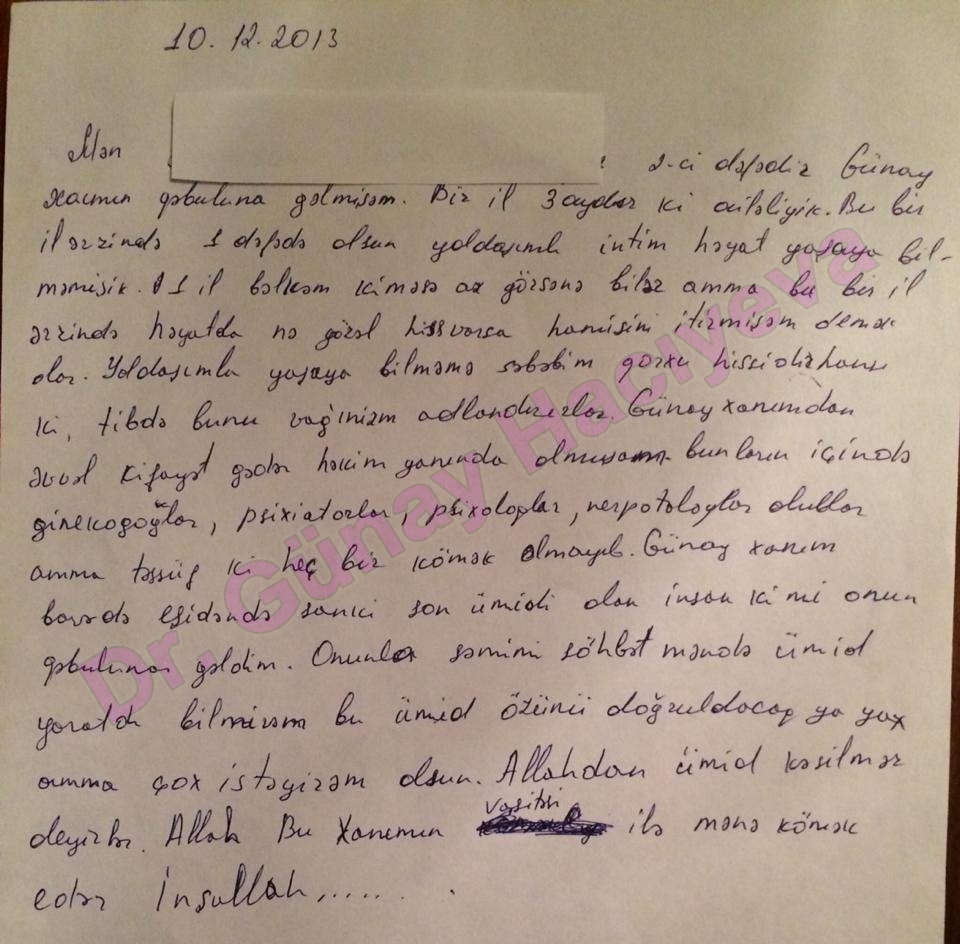 10.12.2013
Mən 2-ci dəfədir Günay
xanımın qəbuluna gəlmişəm. Bir il 3 aydır ki ailəliyik. Bu bir
il ərzində 1 dəfədə olsun yoldaşımla intim həyat yaşaya bil-
məmişik. 1 il bəlkəm kiməsə az görsənə bilər amma bu bir il
ərzində həyatda nə gözəl hiss varsa hamısını itirmişəm demək
olar. Yoldaşımla yaşaya bilməmə səbəbim qorxu hissidir hansı
ki, tibdə bunu vaginizm adlandırırlar. Günay xanımdan
əvvəl kifayət qədər həkim yanında olmuşam bunların içində
ginekogoğlar, psixiatorlar, psixoloqlar, nerpotoloqlar olublar
amma təssüf ki heç bir kömək olmayıb. Günay xanım
barədə eşidəndə sanki son ümidi olan insan kimi onun
qəbuluna gəldim. Onunla səmimi söhbət məndə ümid
yaratdı bilmirəm bu ümid özünü doğruldacaq ya yox
amma çox istəyirəm olsun. Allahdan ümid kəsilməz
deyirlər. Allah Bu Xanımın vasitəsi ilə mənə kömək
edər İnşallah,.....
Dr. Günay Hacıyeva